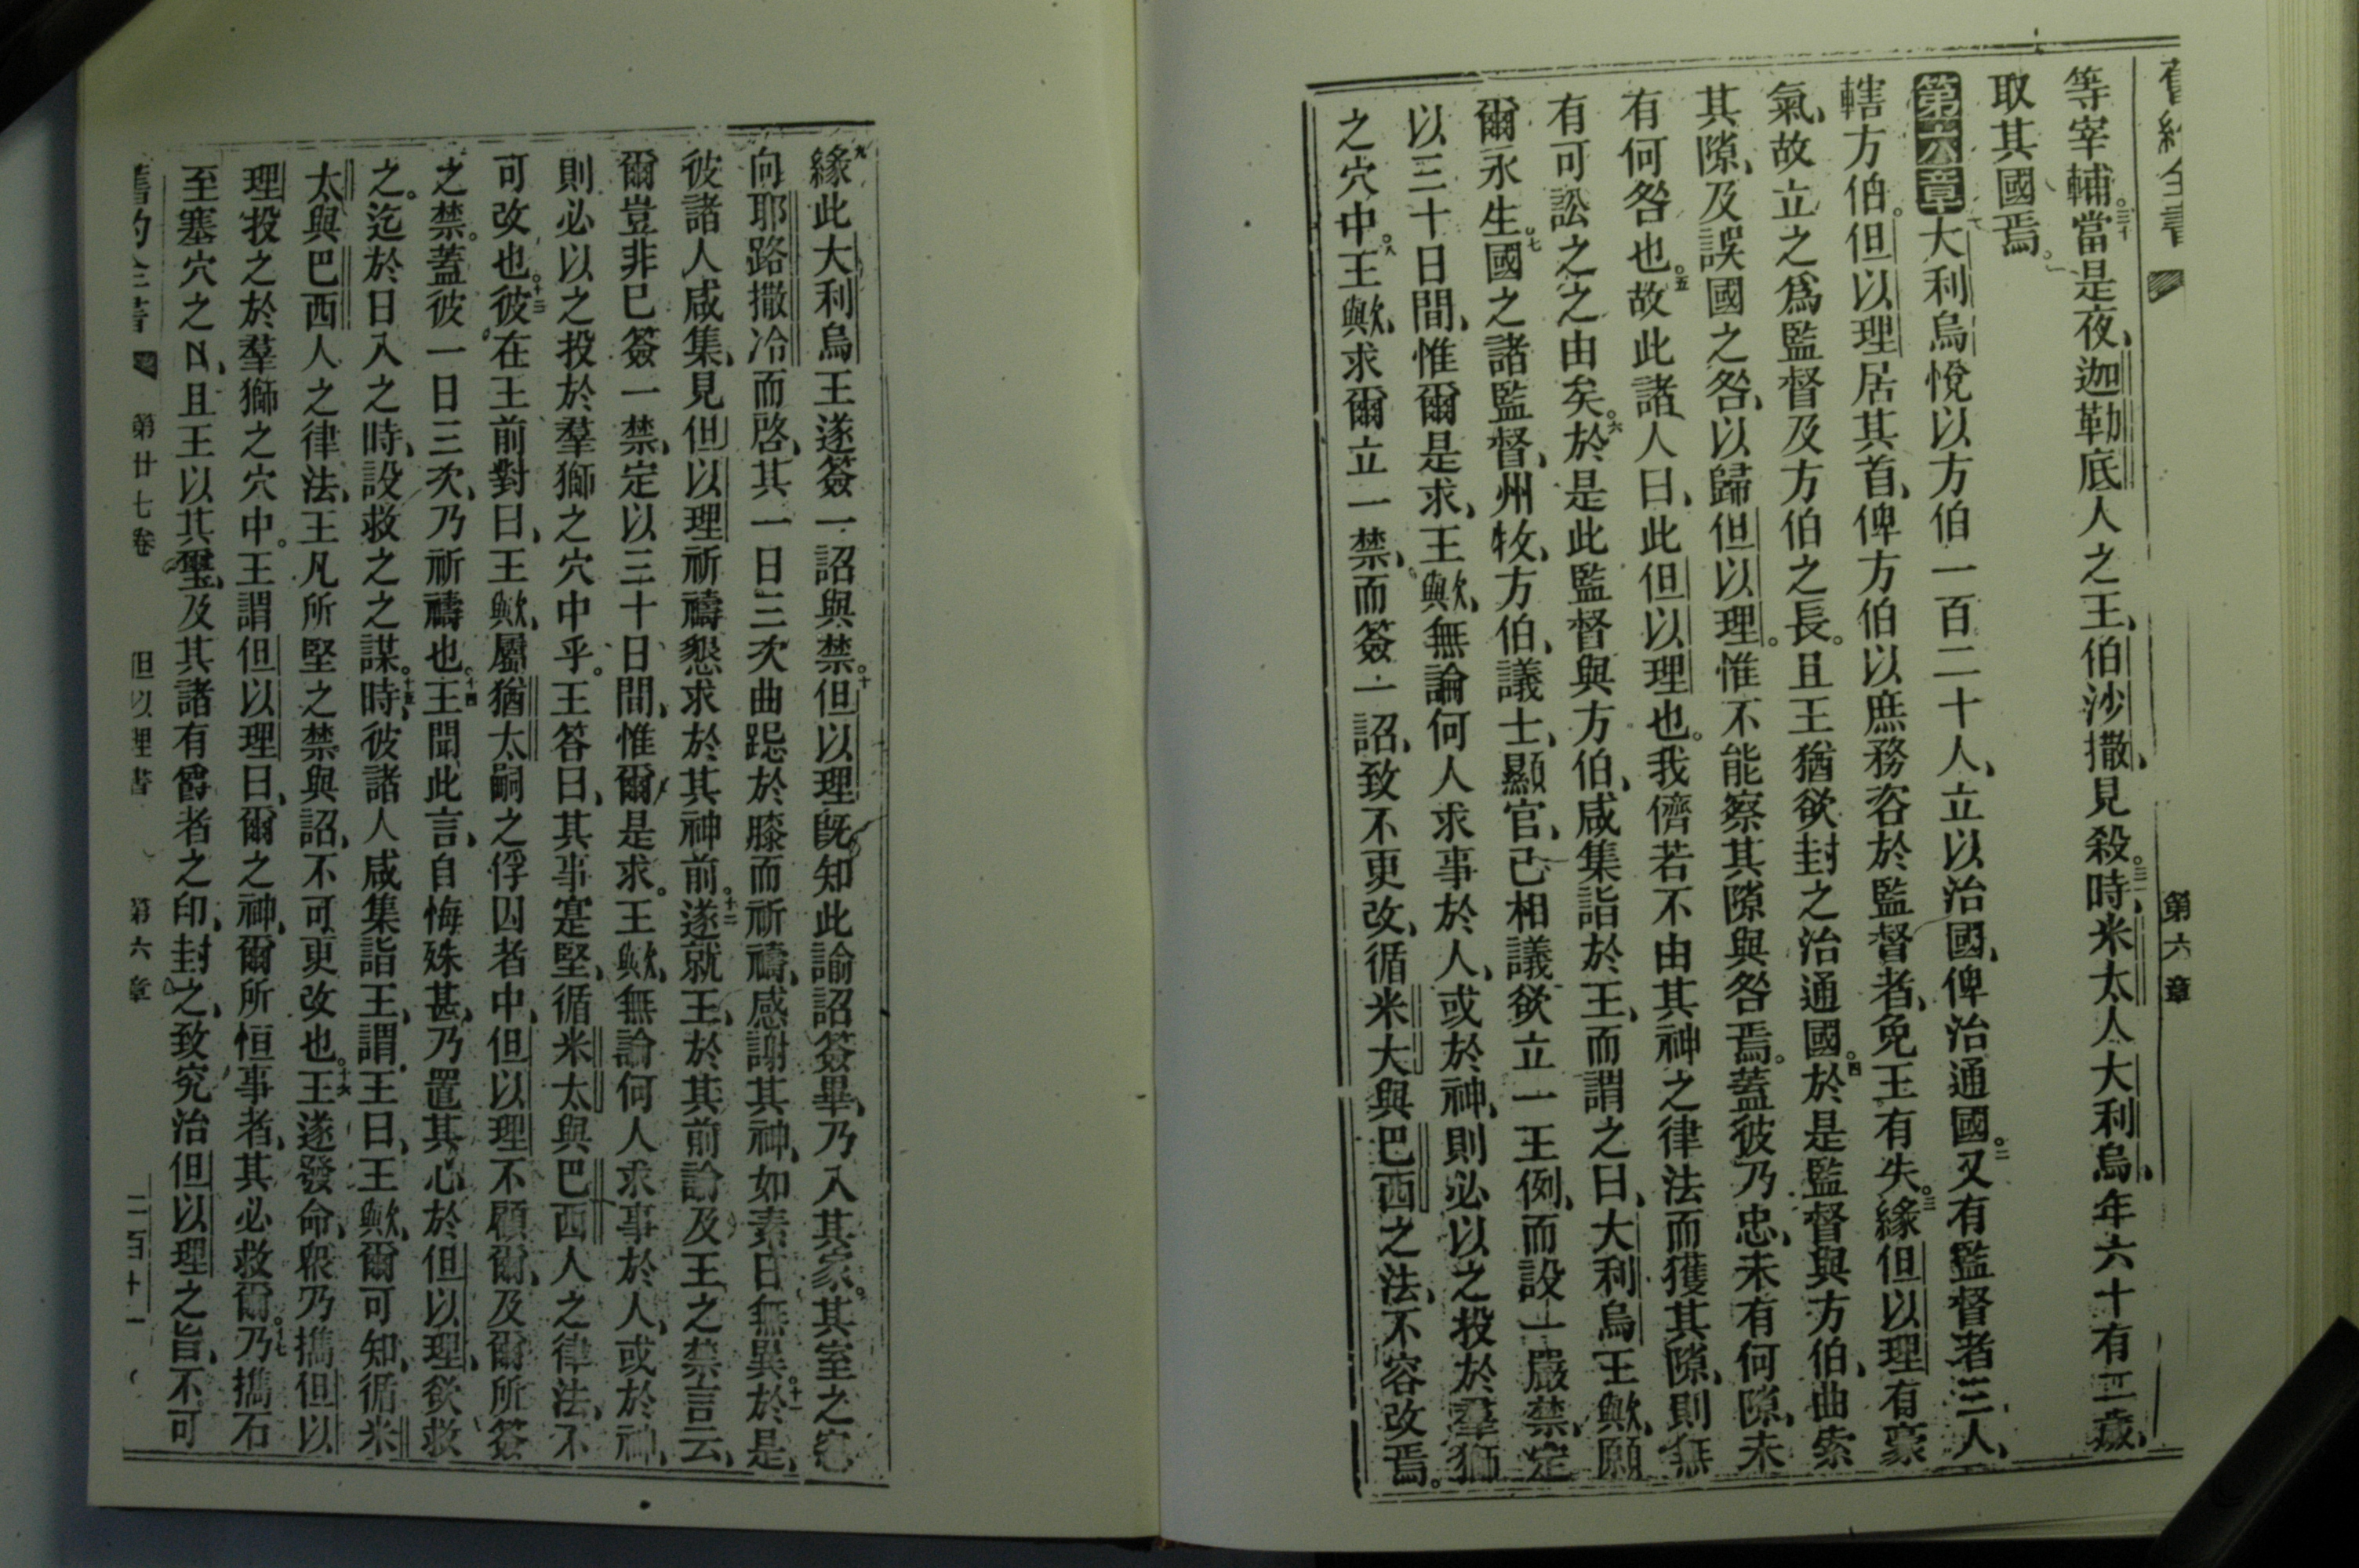 舊約全書 第六章
等宰輔。三十當是夜、迦勒底人之王、伯沙撒、見殺。三一時、米太人大利烏、年六十有二歲、
取其國焉。
第六章一大利烏悅以方伯一百二十人、立以治國、俾治通國。二又有監督者三人、
轄方伯。但以理居其首、俾方伯以庶務咨於監督者、免王有失。三緣但以理有豪
氣、故立之爲監督及方伯之長。且王猶欲封之治通國。四於是監督與方伯、曲索
其隙、及誤國之咎、以歸但以理。惟不能察其隙與咎焉。蓋彼乃忠、未有何隙、未
有何咎也。五故此諸人曰、此但以理也。我儕若不由其神之律法而獲其隙、則無
有可訟之之由矣。六於是此監督與方伯、咸集詣於王、而謂之曰、大利烏王歟、願
爾永生。七國之諸監督、州牧、方伯、議士、顯官、己相議欲立一王例、而設一嚴禁、定
以三十日間、惟爾是求、王歟、無論何人求事於人、或於神、則必以之投於羣獅
之穴中。八王歟、求爾立一禁、而簽一詔、致不更改、循米大與巴西之法、不容改焉。
九緣此大利烏王遂簽一詔與禁。十但以理旣知此諭詔簽畢、乃入其家。其室之窓
向耶路撒冷而啓、其一日三次曲跽於膝而祈禱、感謝其神、如素日無異。十一於是、
彼諸人咸集、見但以理祈禱懇求於其神前。十二遂就王、於其前論及王之禁言云、
爾豈非巳簽一禁、定以三十日間、惟爾是求。王歟、無論何人求事於人、或於神、
則必以之投於羣獅之穴中乎。王答曰、其事寔堅、循米太與巴西人之律法、不
可改也。十三彼在王前對曰、王歟、屬猶太嗣之俘囚者中、但以理不顧爾、及爾所簽
之禁。蓋彼一日三次、乃祈禱也。十四王聞此言、自悔殊甚、乃置其心於但以理、欲救
之。迄於日入之時、設救之之謀。十五時、彼諸人咸集詣王、謂王曰、王歟、爾可知、循米
太與巴西人之律法、王凡所堅之禁與詔、不可更改也。十六王遂發命、衆乃擕但以
理投之於羣獅之穴中。王謂但以理曰、爾之神、爾所恒事者、其必救爾。十七乃擕石
至塞穴之口、且王以其璽、及其諸有爵者之印、封之、致究治但以理之旨、不可
舊約全書 第廿七卷 但以理書 第六章 二百十一